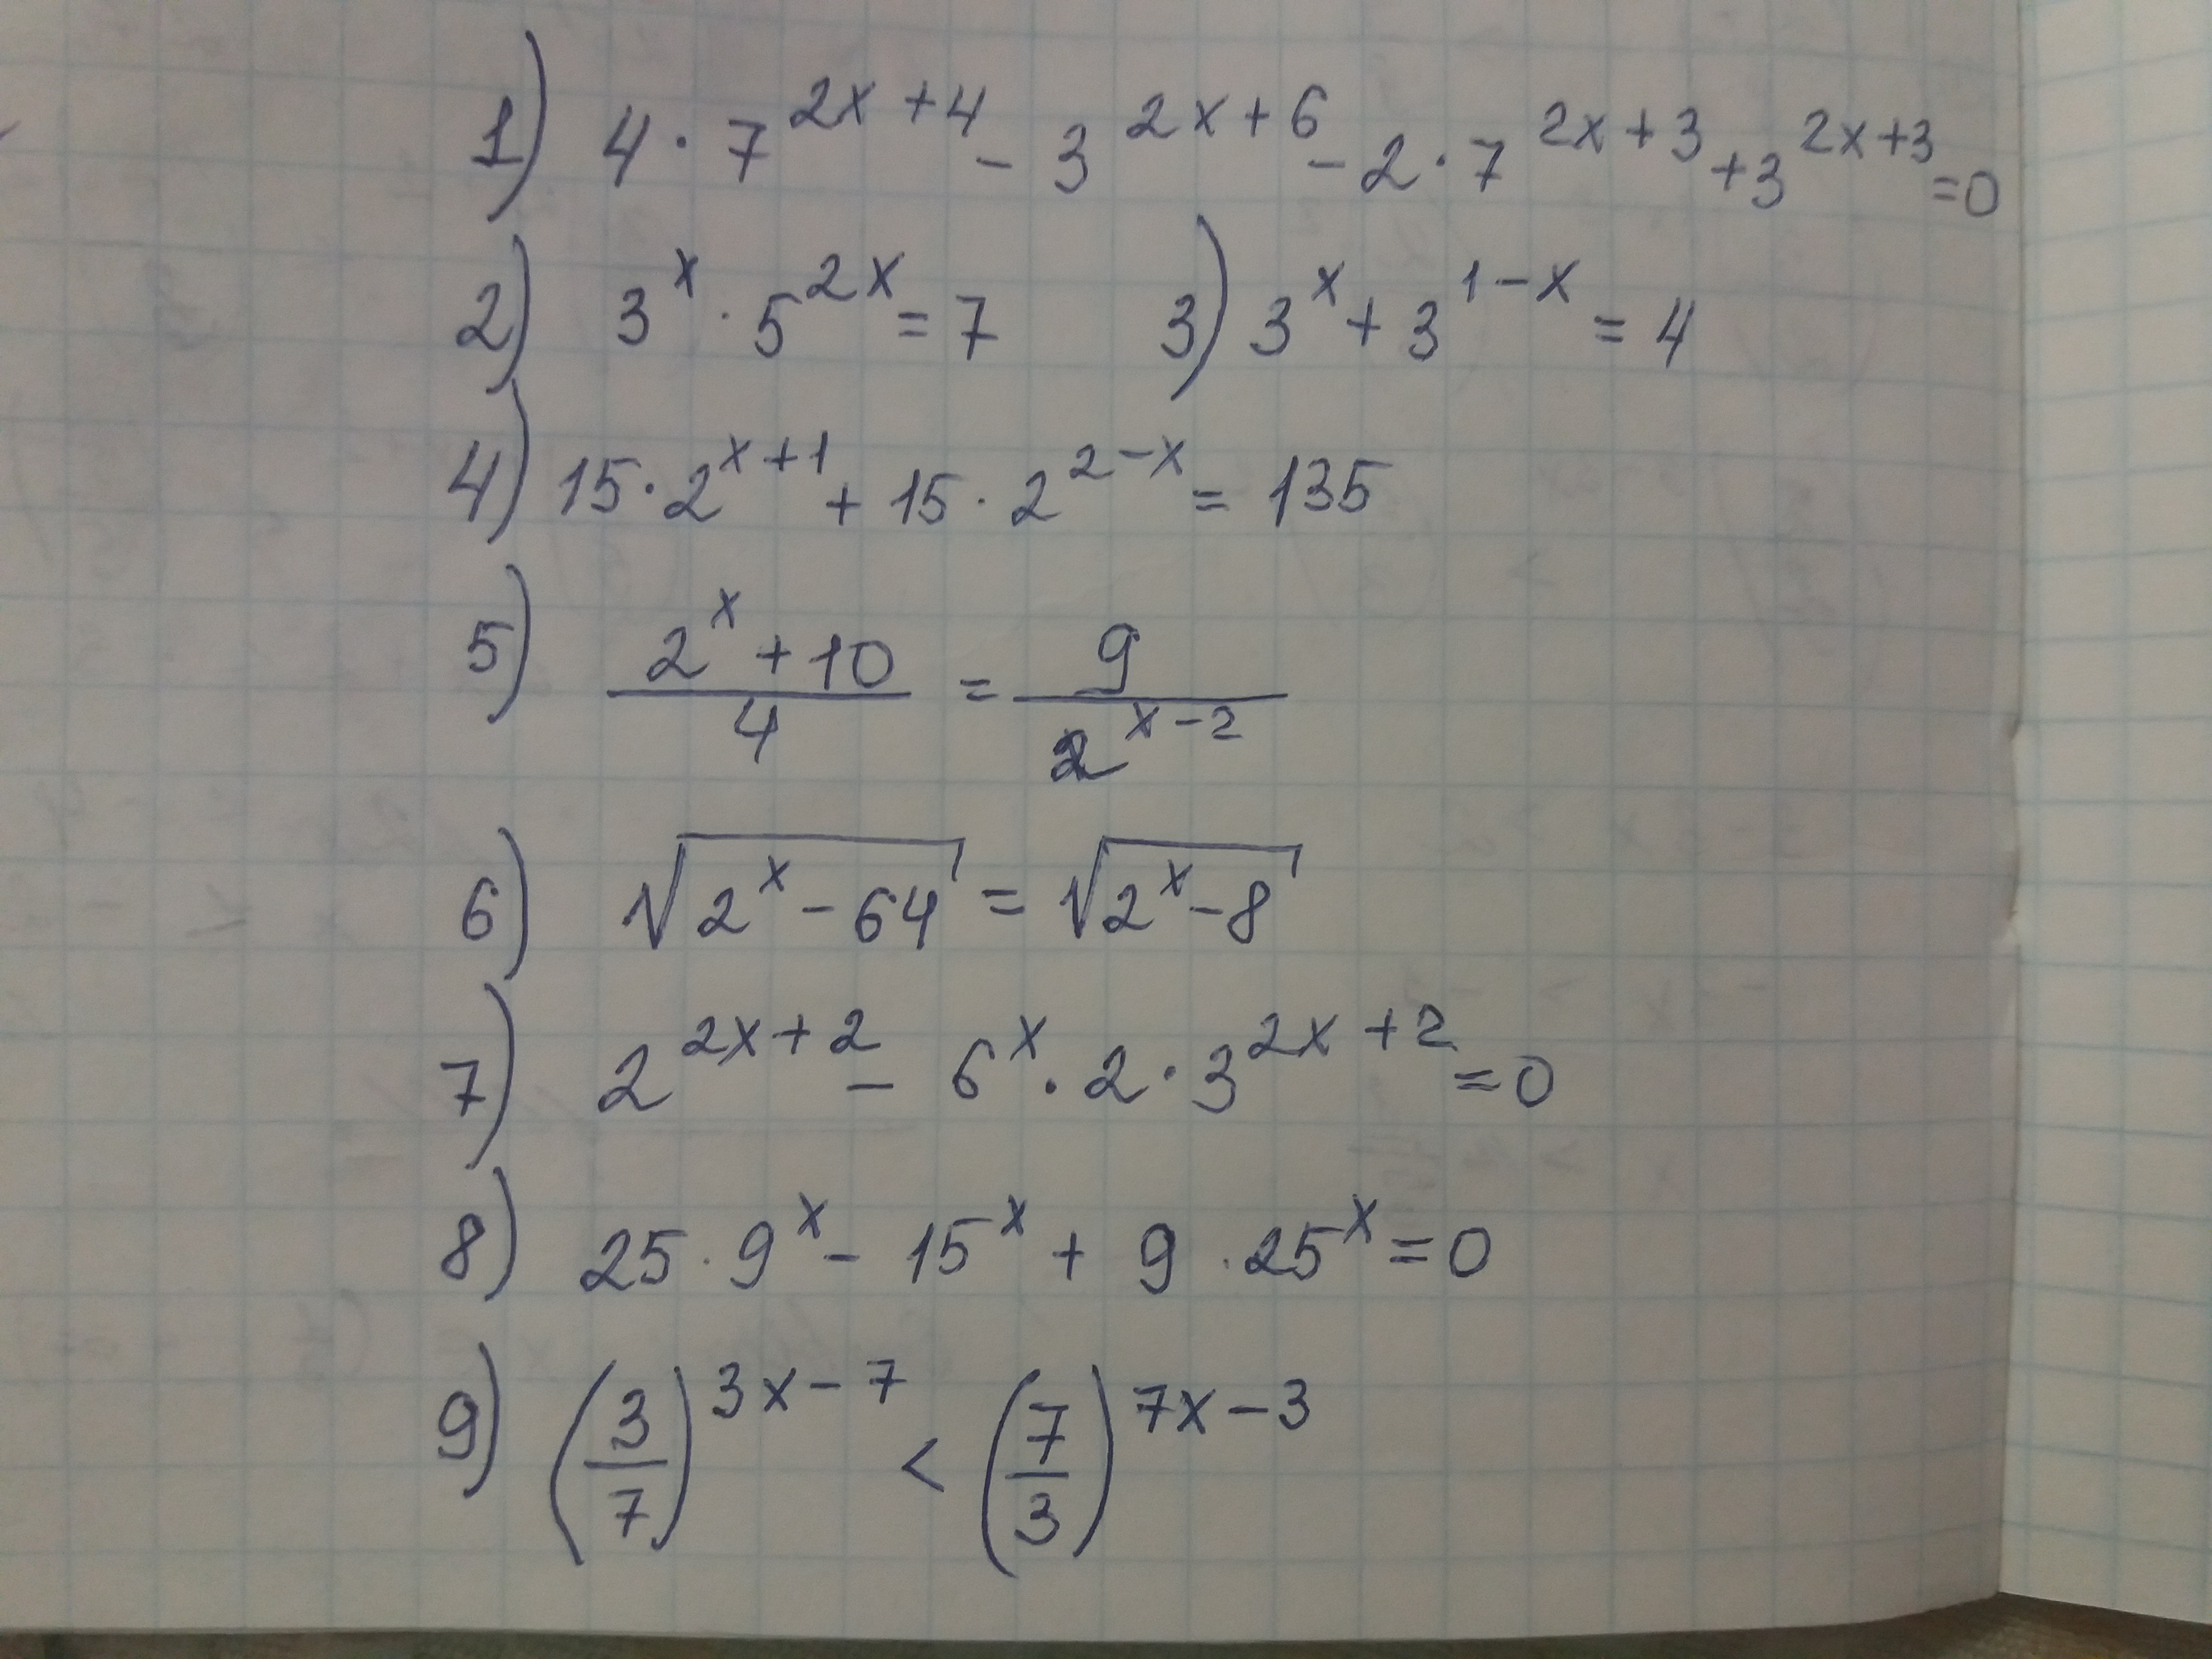 1) 4 · 7^{2x+4} - 3^{2x+6} - 2 · 7^{2x+3} + 3^{2x+3} = 0
2) 3^x · 5^{2x} = 7 3) 3^x + 3^{1-x} = 4
4) 15 · 2^{x+1} + 15 · 2^{2-x} = 135
5) \frac{2^x + 10}{4} = \frac{9}{2^{x-2}}
6) \sqrt{2^x - 64} = \sqrt{2^x - 8}
7) 2^{2x+2} - 6^x · 2 · 3^{2x+2} = 0
8) 25 · 9^x - 15^x + 9 · 25^x = 0
9) (\frac{3}{7})^{3x-7} < (\frac{7}{3})^{7x-3}